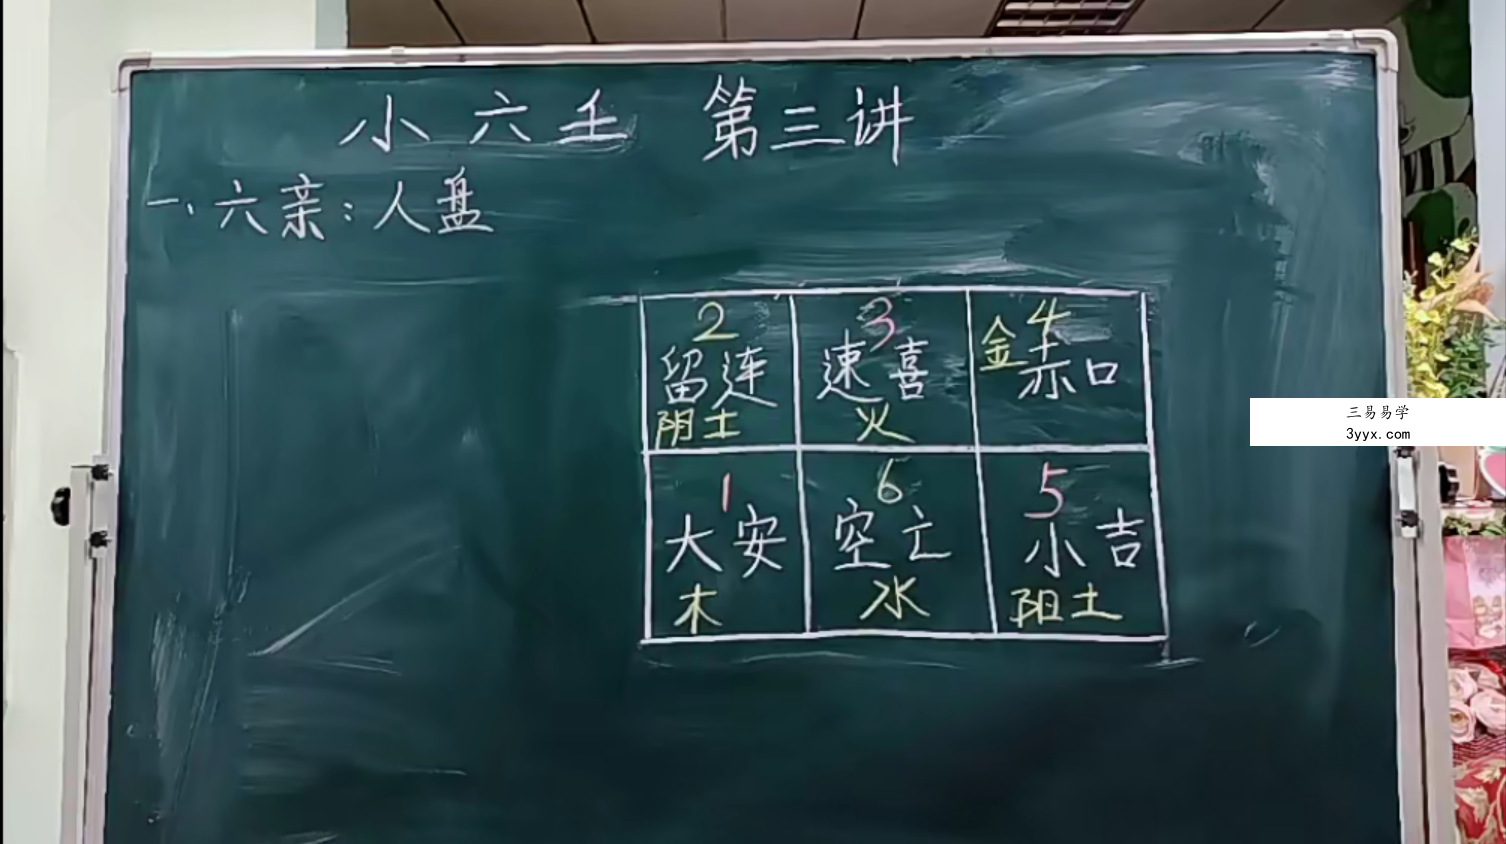 小六壬 第三讲
一、六亲：人盘
2 3 4
留连 速喜 金 赤口
阴土 火
1 6 5
大安 空亡 小吉
木 水 阳土
三易易学
3yyx.com